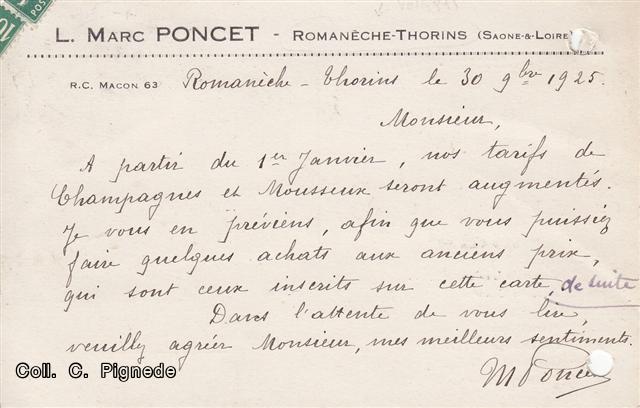 L. MARC PONCET - ROMANÈCHE-THORINS (SAONE-&-LOIRE)
R.C. MACON 63 Romanèche - Thorins le 30 9bre 1925.
Monsieur,
A partir du 1er Janvier, nos tarifs de
Champagnes et Mousseux seront augmentés.
Je vous en préviens, afin que vous puissiez
faire quelques achats aux anciens prix,
qui sont ceux inscrits sur cette carte, de suite
Dans l'attente de vous lire,
veuillez agréer Monsieur, mes meilleurs sentiments.
M Poncet
Coll. C. Pignede